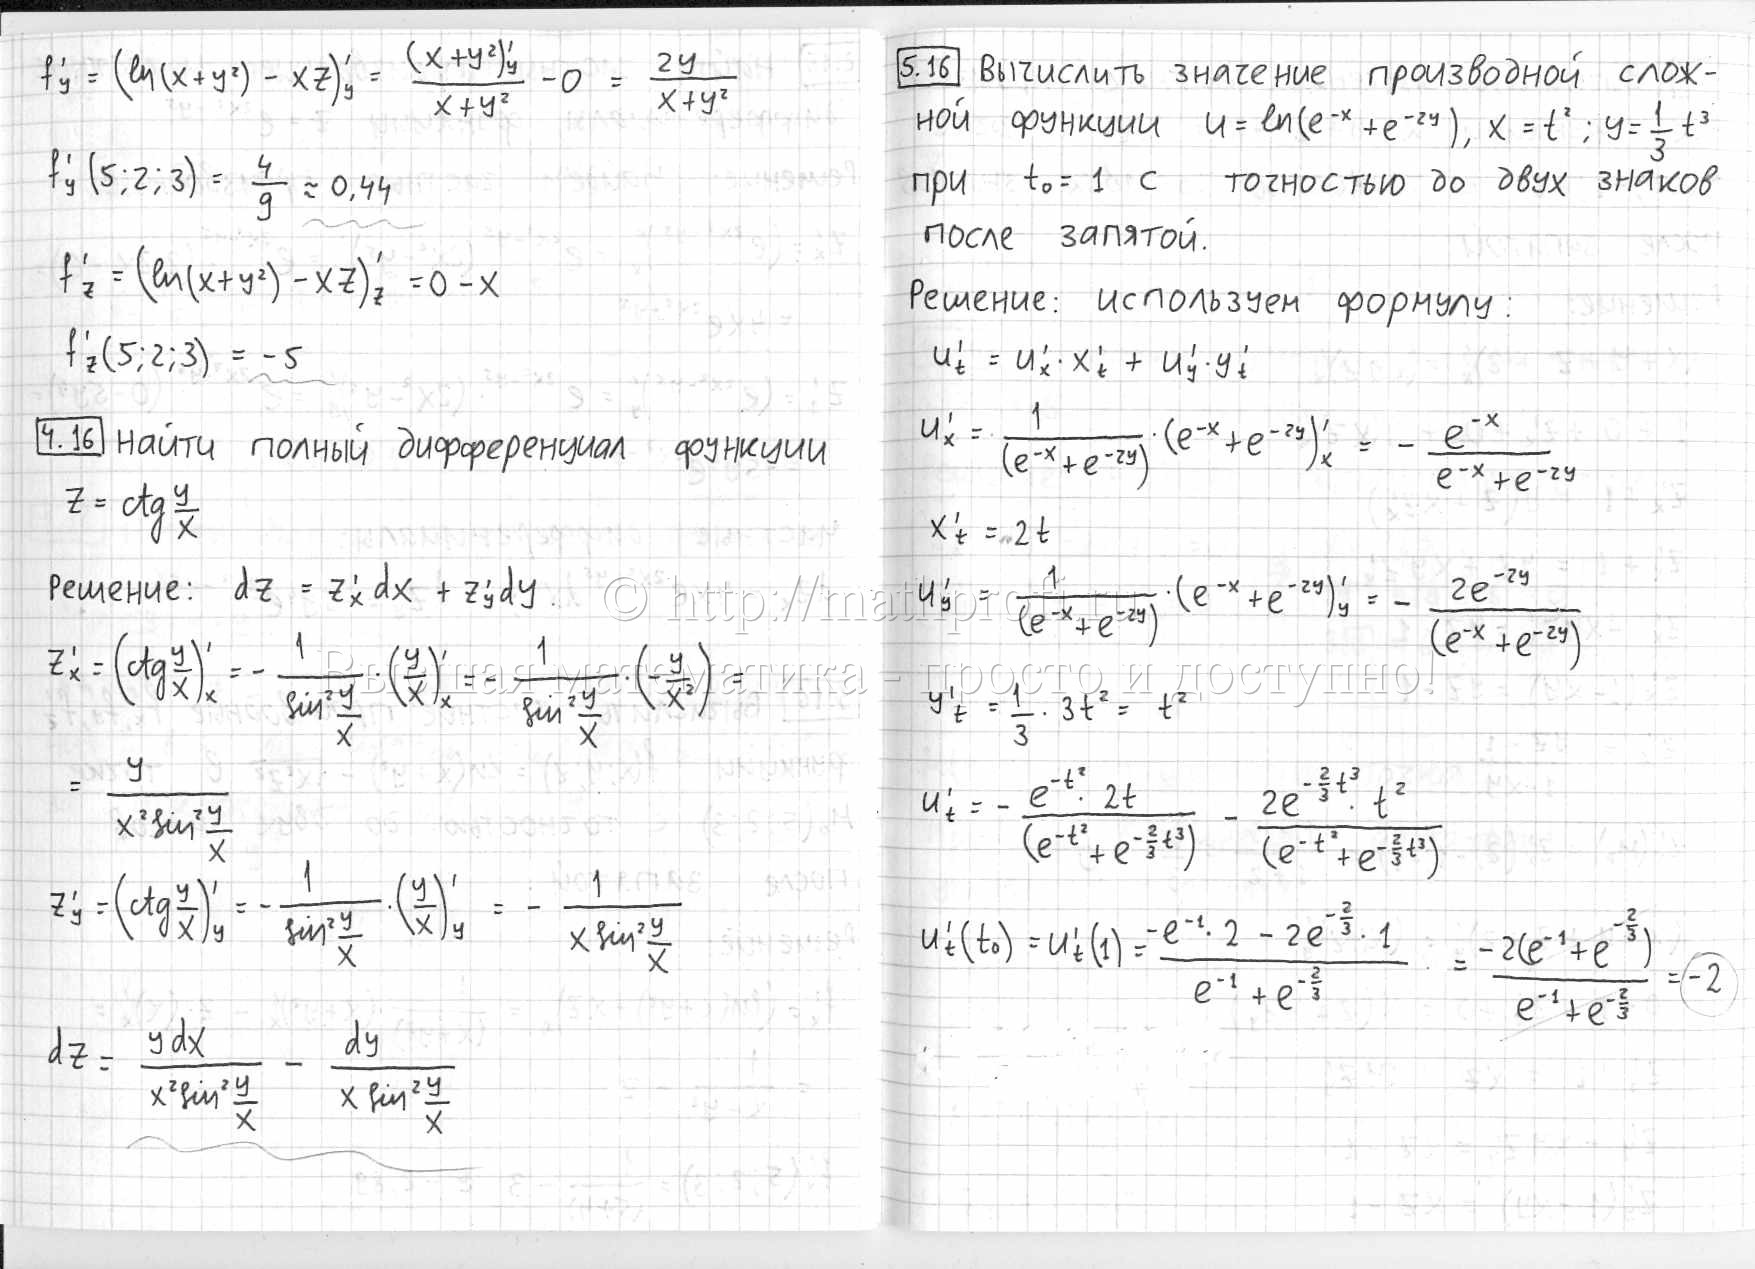 f'y = (ln(x+y²) − xz)'y = (x+y²)'y / (x+y²) − 0 = 2y / (x+y²)
f'y (5;2;3) = 4/9 ≈ 0,44
f'z = (ln(x+y²) − xz)'z = 0 − x
f'z (5;2;3) = −5
4.16 Найти полный дифференциал функции
z = ctg y/x
Решение: dz = z'x dx + z'y dy.
z'x = (ctg y/x)'x = − 1/(sin² y/x) · (y/x)'x = − 1/(sin² y/x) · (− y/x²) =
= y/(x² sin² y/x)
z'y = (ctg y/x)'y = − 1/(sin² y/x) · (y/x)'y = − 1/(x sin² y/x)
dz = y dx/(x² sin² y/x) − dy/(x sin² y/x)
5.16 Вычислить значение производной слож-
ной функции u = ln(e^(-x) + e^(-2y)), x = t²; y = 1/3 t³
при t₀ = 1 с точностью до двух знаков
после запятой.
Решение: используем формулу:
u't = u'x · x't + u'y · y't
u'x = 1/(e^(-x) + e^(-2y)) · (e^(-x) + e^(-2y))'x = − e^(-x)/(e^(-x) + e^(-2y))
x't = 2t
u'y = 1/(e^(-x) + e^(-2y)) · (e^(-x) + e^(-2y))'y = − 2e^(-2y)/(e^(-x) + e^(-2y))
y't = 1/3 · 3t² = t²
u't = − e^(-t²) · 2t/(e^(-t²) + e^(-2/3 t³)) − 2e^(-2/3 t³) · t²/(e^(-t²) + e^(-2/3 t³))
u't(t₀) = u't(1) = (−e^(-1) · 2 − 2e^(-2/3) · 1)/(e^(-1) + e^(-2/3)) = −2(e^(-1) + e^(-2/3))/(e^(-1) + e^(-2/3)) = −2
© http://mathprofi.ru
Высшая математика - просто и доступно!